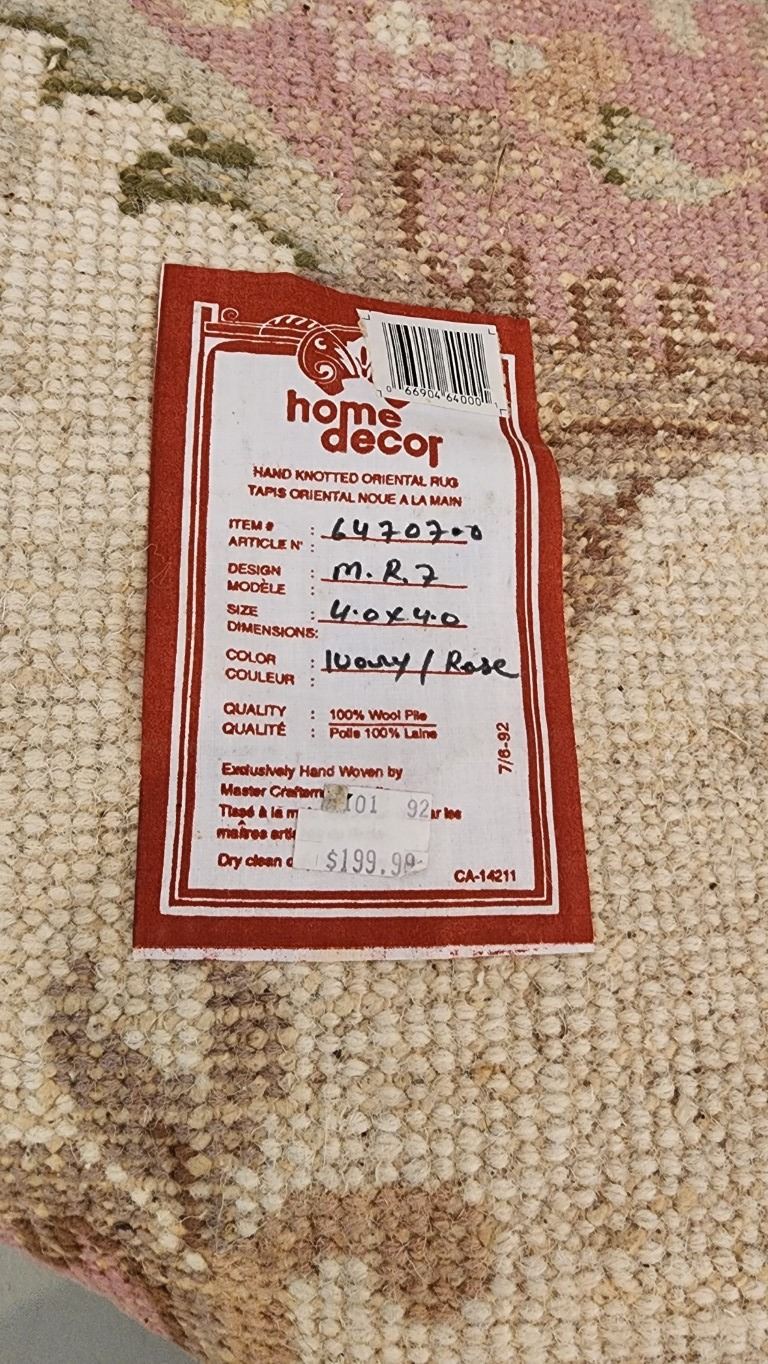 0 66904 64000
home
decor
HAND KNOTTED ORIENTAL RUG
TAPIS ORIENTAL NOUE A LA MAIN
ITEM # : 64707-0
ARTICLE N° :
DESIGN : M.R.7
MODÈLE :
SIZE : 4.0x4.0
DIMENSIONS:
COLOR : Ivory / Rose
COULEUR :
QUALITY : 100% Wool Pile
QUALITÉ : Poile 100% Laine
7/6-92
Exclusively Hand Woven by
Master Craftsm
Tissé à la m ar les
maîtres arti
101 92
$199.99
Dry clean o
CA-14211